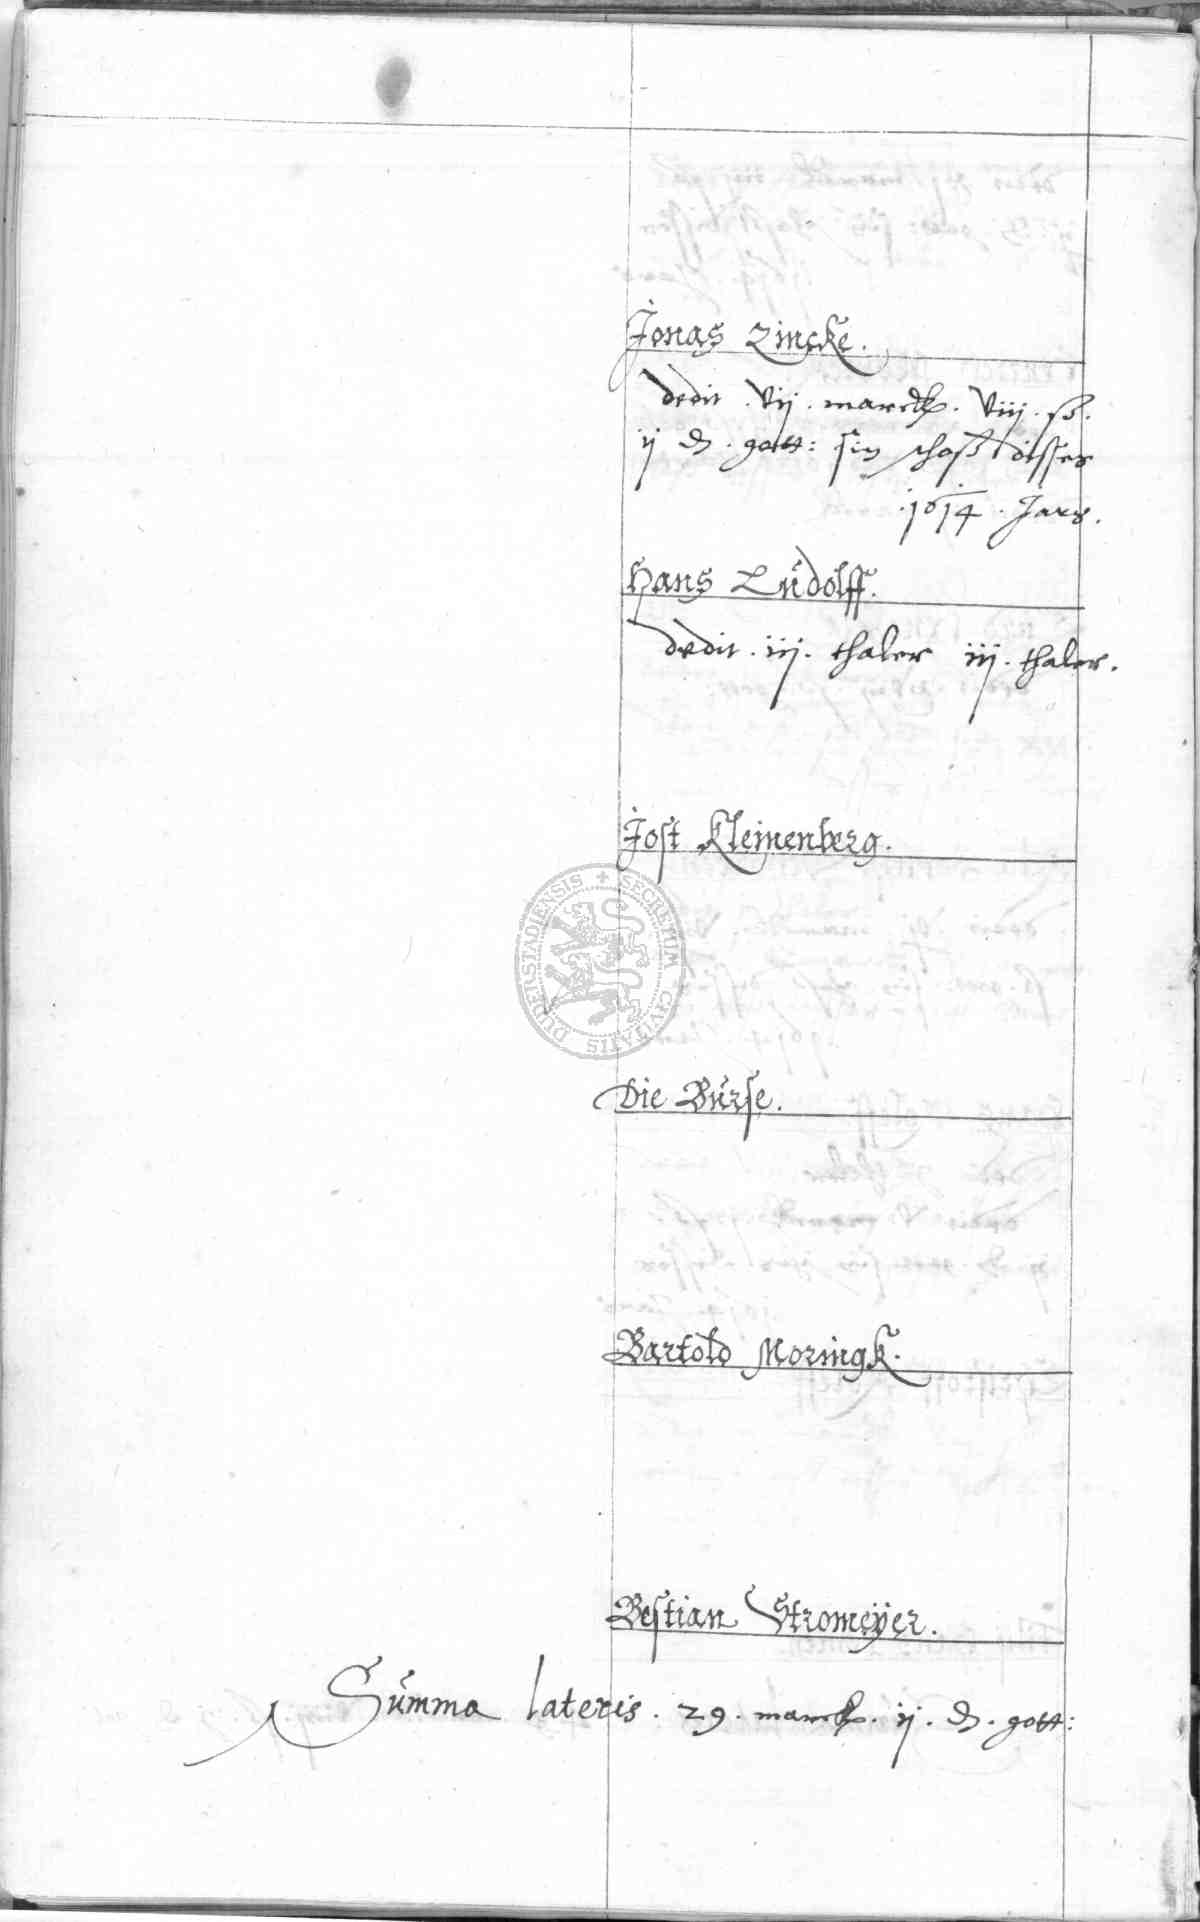 Jonas Zincke.
dedit . vij . marck . viij . ß .
ij d . gott: sin schoß disses
. 1614 . Jars .
Hans Lüdolff.
dedit . iij . thaler iij . thaler .
Jost Kleinenberg.
DUDERSTADIENSIS + SECRETUM CIVITATIS
Die Bürse.
Bartold Moringk.
Bestian Stromeÿer.
Summa lateris . 29 . marck . ij . d . gott: